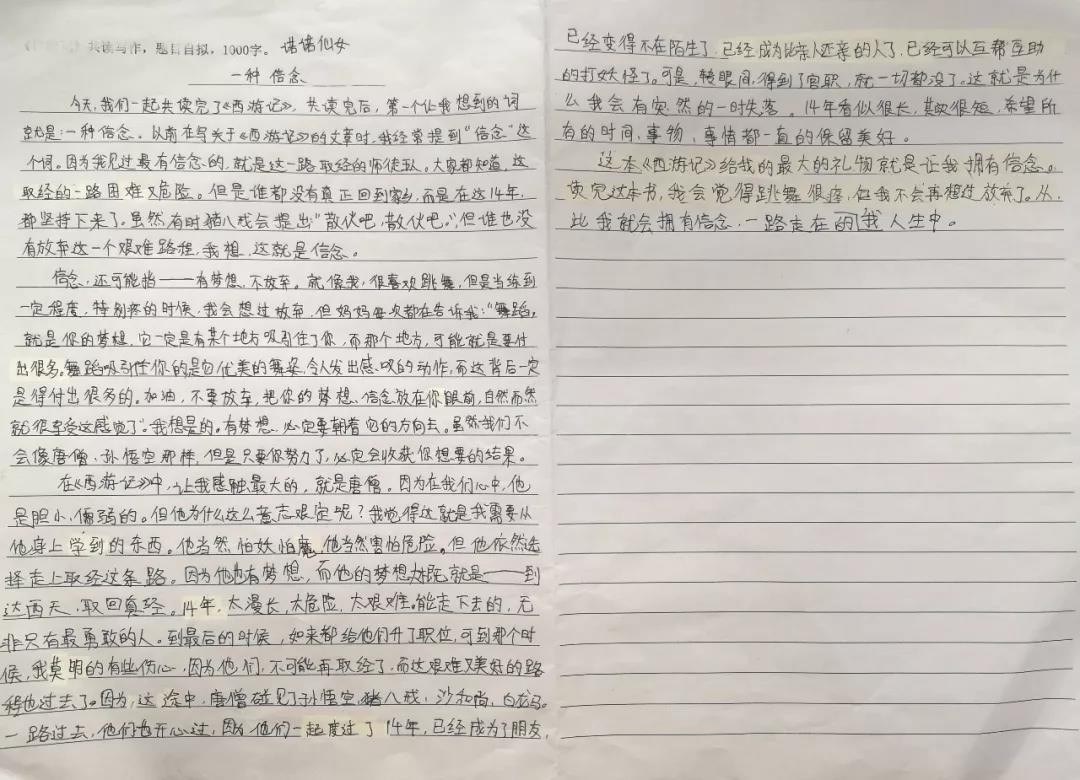 共读写作，题目自拟，1000字。 诺诺仙女
一种 信念
今天，我们一起共读完了《西游记》，共读完后，第一个让我想到的词
就是：一种信念。以前在写关于《西游记》的文章时，我经常提到“信念”这
个词。因为我见过最有信念的，就是这一路取经的师徒队。大家都知道，这
取经的一路困难又危险。但是谁都没有真正回到家乡，而是在这14年，
都坚持下来了。虽然有时猪八戒会提出“散伙吧，散伙吧。”，但谁也没
有放弃这一个艰难路程，我想，这就是信念。
信念，还可能指——有梦想，不放弃。就像我，很喜欢跳舞，但是当练到
一定程度，特别疼的时候，我会想过放弃，但妈妈每次都在告诉我：“舞蹈，
就是你的梦想，它一定是有某个地方吸引住了你，而那个地方，可能就是要付
出很多。舞蹈吸引住你的是它优美的舞姿，令人发出感叹的动作，而这背后一定
是得付出很多的。加油，不要放弃，把你的梦想、信念放在你眼前，自然而然
就很享受这感觉了”。我想是的。有梦想，必定要朝着它的方向去。虽然我们不
会像唐僧、孙悟空那样，但是只要你努力了，必定会收获你想要的结果。
在《西游记》中，让我感触最大的，就是唐僧。因为在我们心中，他
是胆小、懦弱的。但他为什么这么意志艰定呢？我觉得这就是我需要从
他身上学到的东西。他当然怕妖怕魔，他当然害怕危险。但他依然选
择走上取经这条路。因为他也有梦想，而他的梦想就是——到
达西天，取回真经。14年，太漫长，太危险，太艰难。能走下去的，无
非只有最勇敢的人。到最后的时候，如来都给他们升了职位，可到那个时
候，我莫明的有些伤心，因为他们，不可能再取经了，而这艰难又美好的路
程也过去了。因为，这途中，唐僧碰见了孙悟空，猪八戒，沙和尚，白龙马。
一路过去，他们也开心过，因为他们一起度过了14年，已经成为了朋友，
已经变得不在陌生了，已经成为比亲人还亲的人了，已经可以互帮互助
的打妖怪了。可是，转眼间，得到了官职，就一切都没了。这就是为什
么我会有突然的一时失落。14年看似很长，其实很短，希望所
有的时间、事物、事情都一直的保留美好。
这本《西游记》给我的最大的礼物就是让我拥有信念。
读完这本书，我会觉得跳舞很疼，但我不会再想过放弃了。从
此我就会拥有信念，一路走在的我人生中。